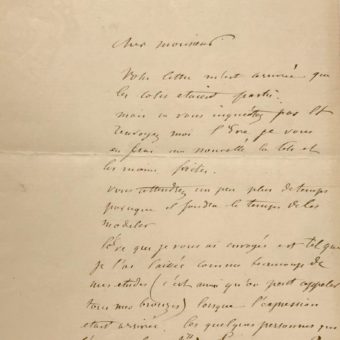 cher monsieur
Votre lettre m'est arrivée que
les colis étaient partis.
mais ne vous inquiétez pas et
renvoyez moi l'Eve je vous
en ferai une nouvelle la tête et
les mains faites.
vous attendrez un peu plus de temps
puisque il faudra le temps de les
modeler
l'Eve que je vous ai envoyée est tel que
je l'ai laissée comme beaucoup de
mes etudes (c'est ainsi qu'on peut appeler
tous mes bronzes) lorsque l'expression
etait arrivée. les quelques personnes que